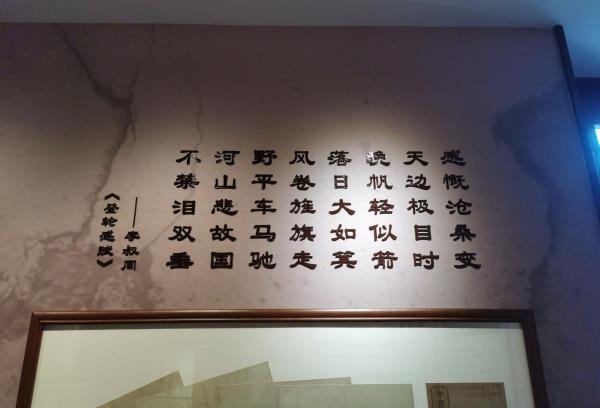 感慨沧桑变
天边极目时
晚帆轻似箭
落日大如箕
风卷旌旗走
野平车马驰
河山悲故国
不禁泪双垂
——李叔同
《登轮感赋》